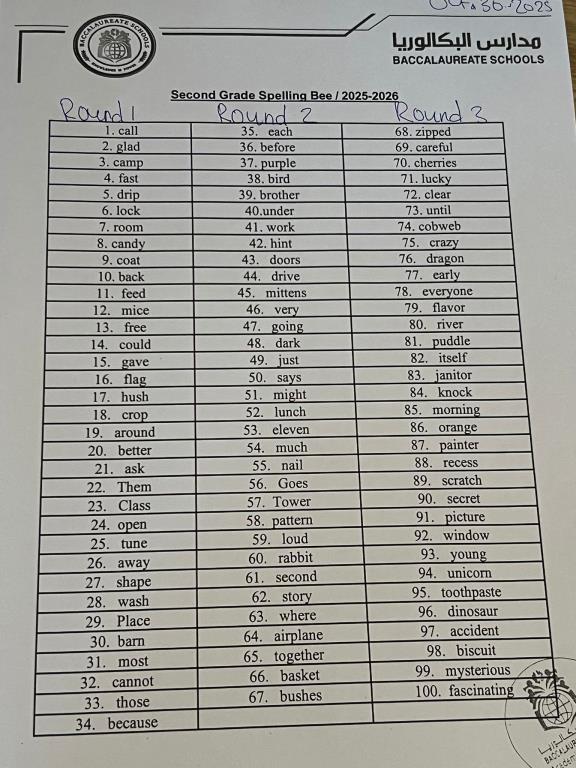 Oct. 30. 2025
BACCALAUREATE SCHOOLS
مدارس البكالوريا
BACCALAUREATE SCHOOLS
Second Grade Spelling Bee / 2025-2026
Round 1 Round 2 Round 3
1. call 35. each 68. zipped
2. glad 36. before 69. careful
3. camp 37. purple 70. cherries
4. fast 38. bird 71. lucky
5. drip 39. brother 72. clear
6. lock 40.under 73. until
7. room 41. work 74. cobweb
8. candy 42. hint 75. crazy
9. coat 43. doors 76. dragon
10. back 44. drive 77. early
11. feed 45. mittens 78. everyone
12. mice 46. very 79. flavor
13. free 47. going 80. river
14. could 48. dark 81. puddle
15. gave 49. just 82. itself
16. flag 50. says 83. janitor
17. hush 51. might 84. knock
18. crop 52. lunch 85. morning
19. around 53. eleven 86. orange
20. better 54. much 87. painter
21. ask 55. nail 88. recess
22. Them 56. Goes 89. scratch
23. Class 57. Tower 90. secret
24. open 58. pattern 91. picture
25. tune 59. loud 92. window
26. away 60. rabbit 93. young
27. shape 61. second 94. unicorn
28. wash 62. story 95. toothpaste
29. Place 63. where 96. dinosaur
30. barn 64. airplane 97. accident
31. most 65. together 98. biscuit
32. cannot 66. basket 99. mysterious
33. those 67. bushes 100. fascinating
34. because